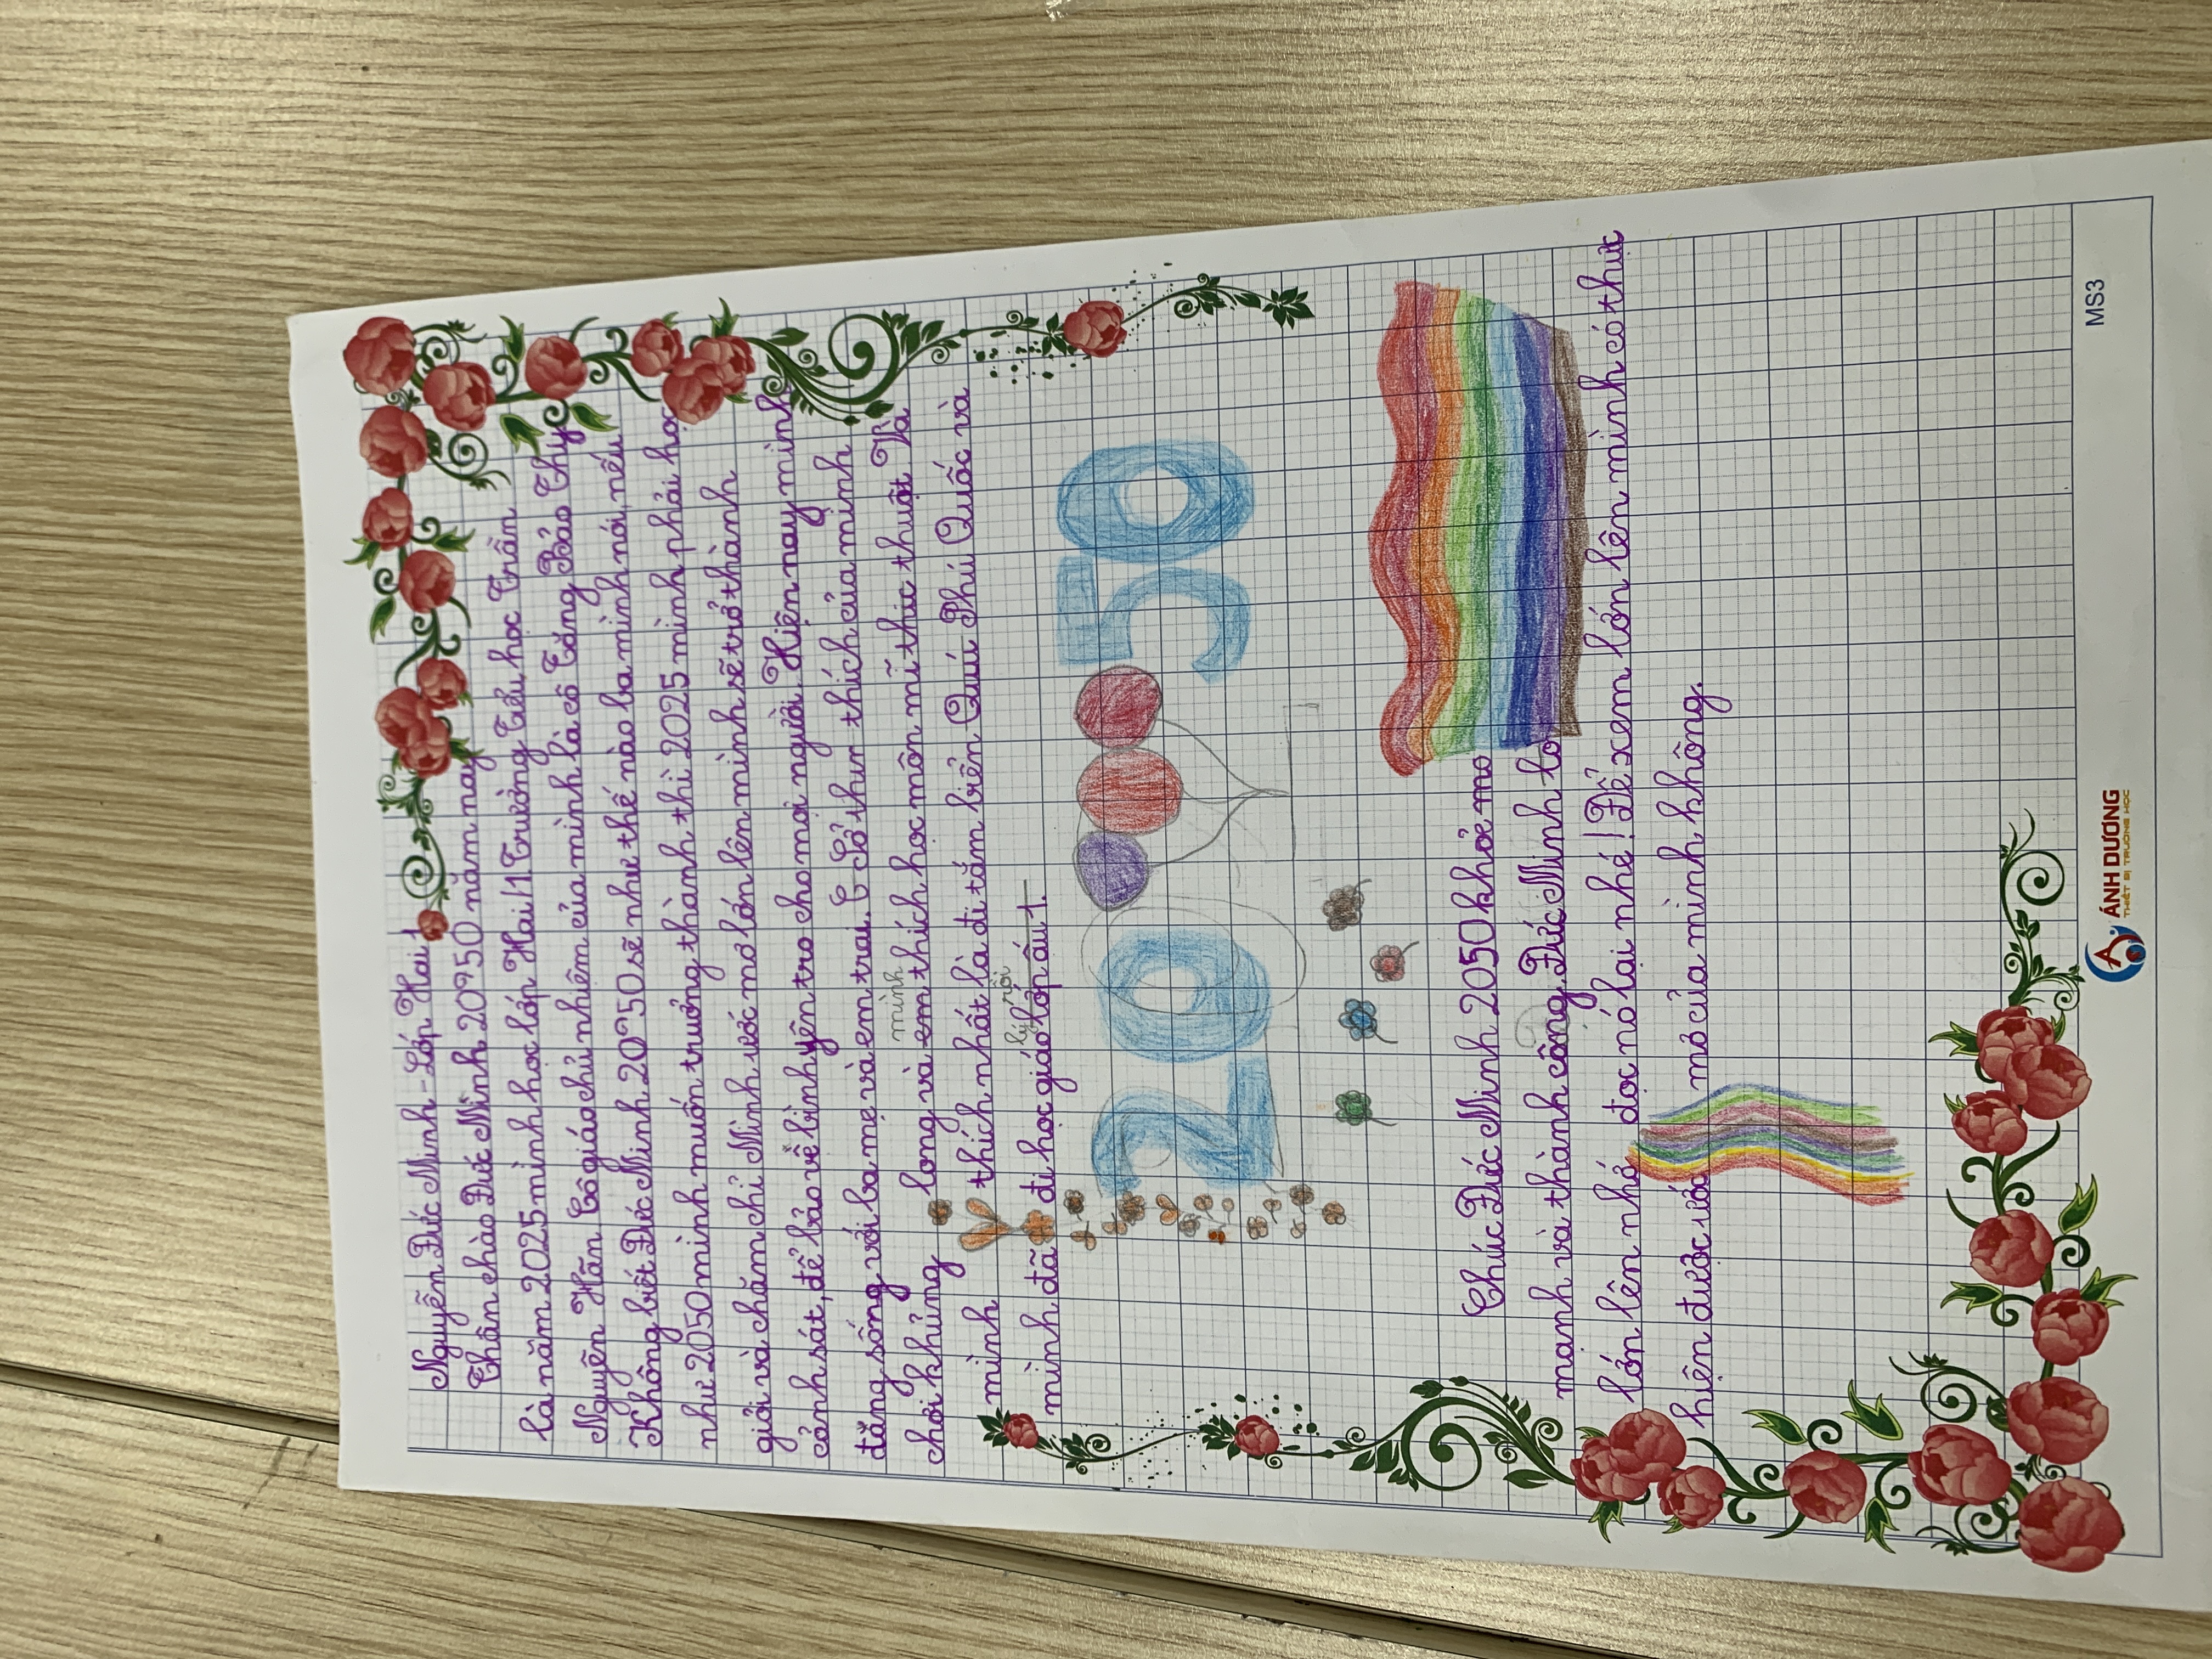 Nguyễn Đức Minh - Lớp Hai 1
Thân chào Đức Minh 2050 năm nay
là năm 2025 mình học lớp Hai/1 Trường Tiểu học Trần
Nguyễn Hãn Cô giáo chủ nhiệm của mình là cô Tăng Bảo Thy
Không biết Đức Minh 2050 sẽ như thế nào ba mình nói, nếu
như 2050 mình muốn trưởng thành thì 2025 mình phải học
giỏi và chăm chỉ Mình ước mơ lớn lên mình sẽ trở thành
cảnh sát, để bảo vệ bình yên tro cho mọi người. Hiện nay mình
đăng sống với ba mẹ và em trai. Sở thum thích của mình
chơi khủng long và em thích học môn mĩ thực thuột Và
mình
mình thích nhất là đi tắm biển Quú Phú Quốc và
mình đã đi học giáo lớp ấu 1.
lý rồi
2050
Chúc Đức Minh 2050 khỏe mo
mạnh và thành công. Đức Minh lo
lớn lên nhớ đọc nó lại nhé! Để xem lớn lên mình có thực
hiện được ước mơ của mình không.
ÁNH DƯƠNG
THIẾT BỊ TRƯỜNG HỌC
MS3